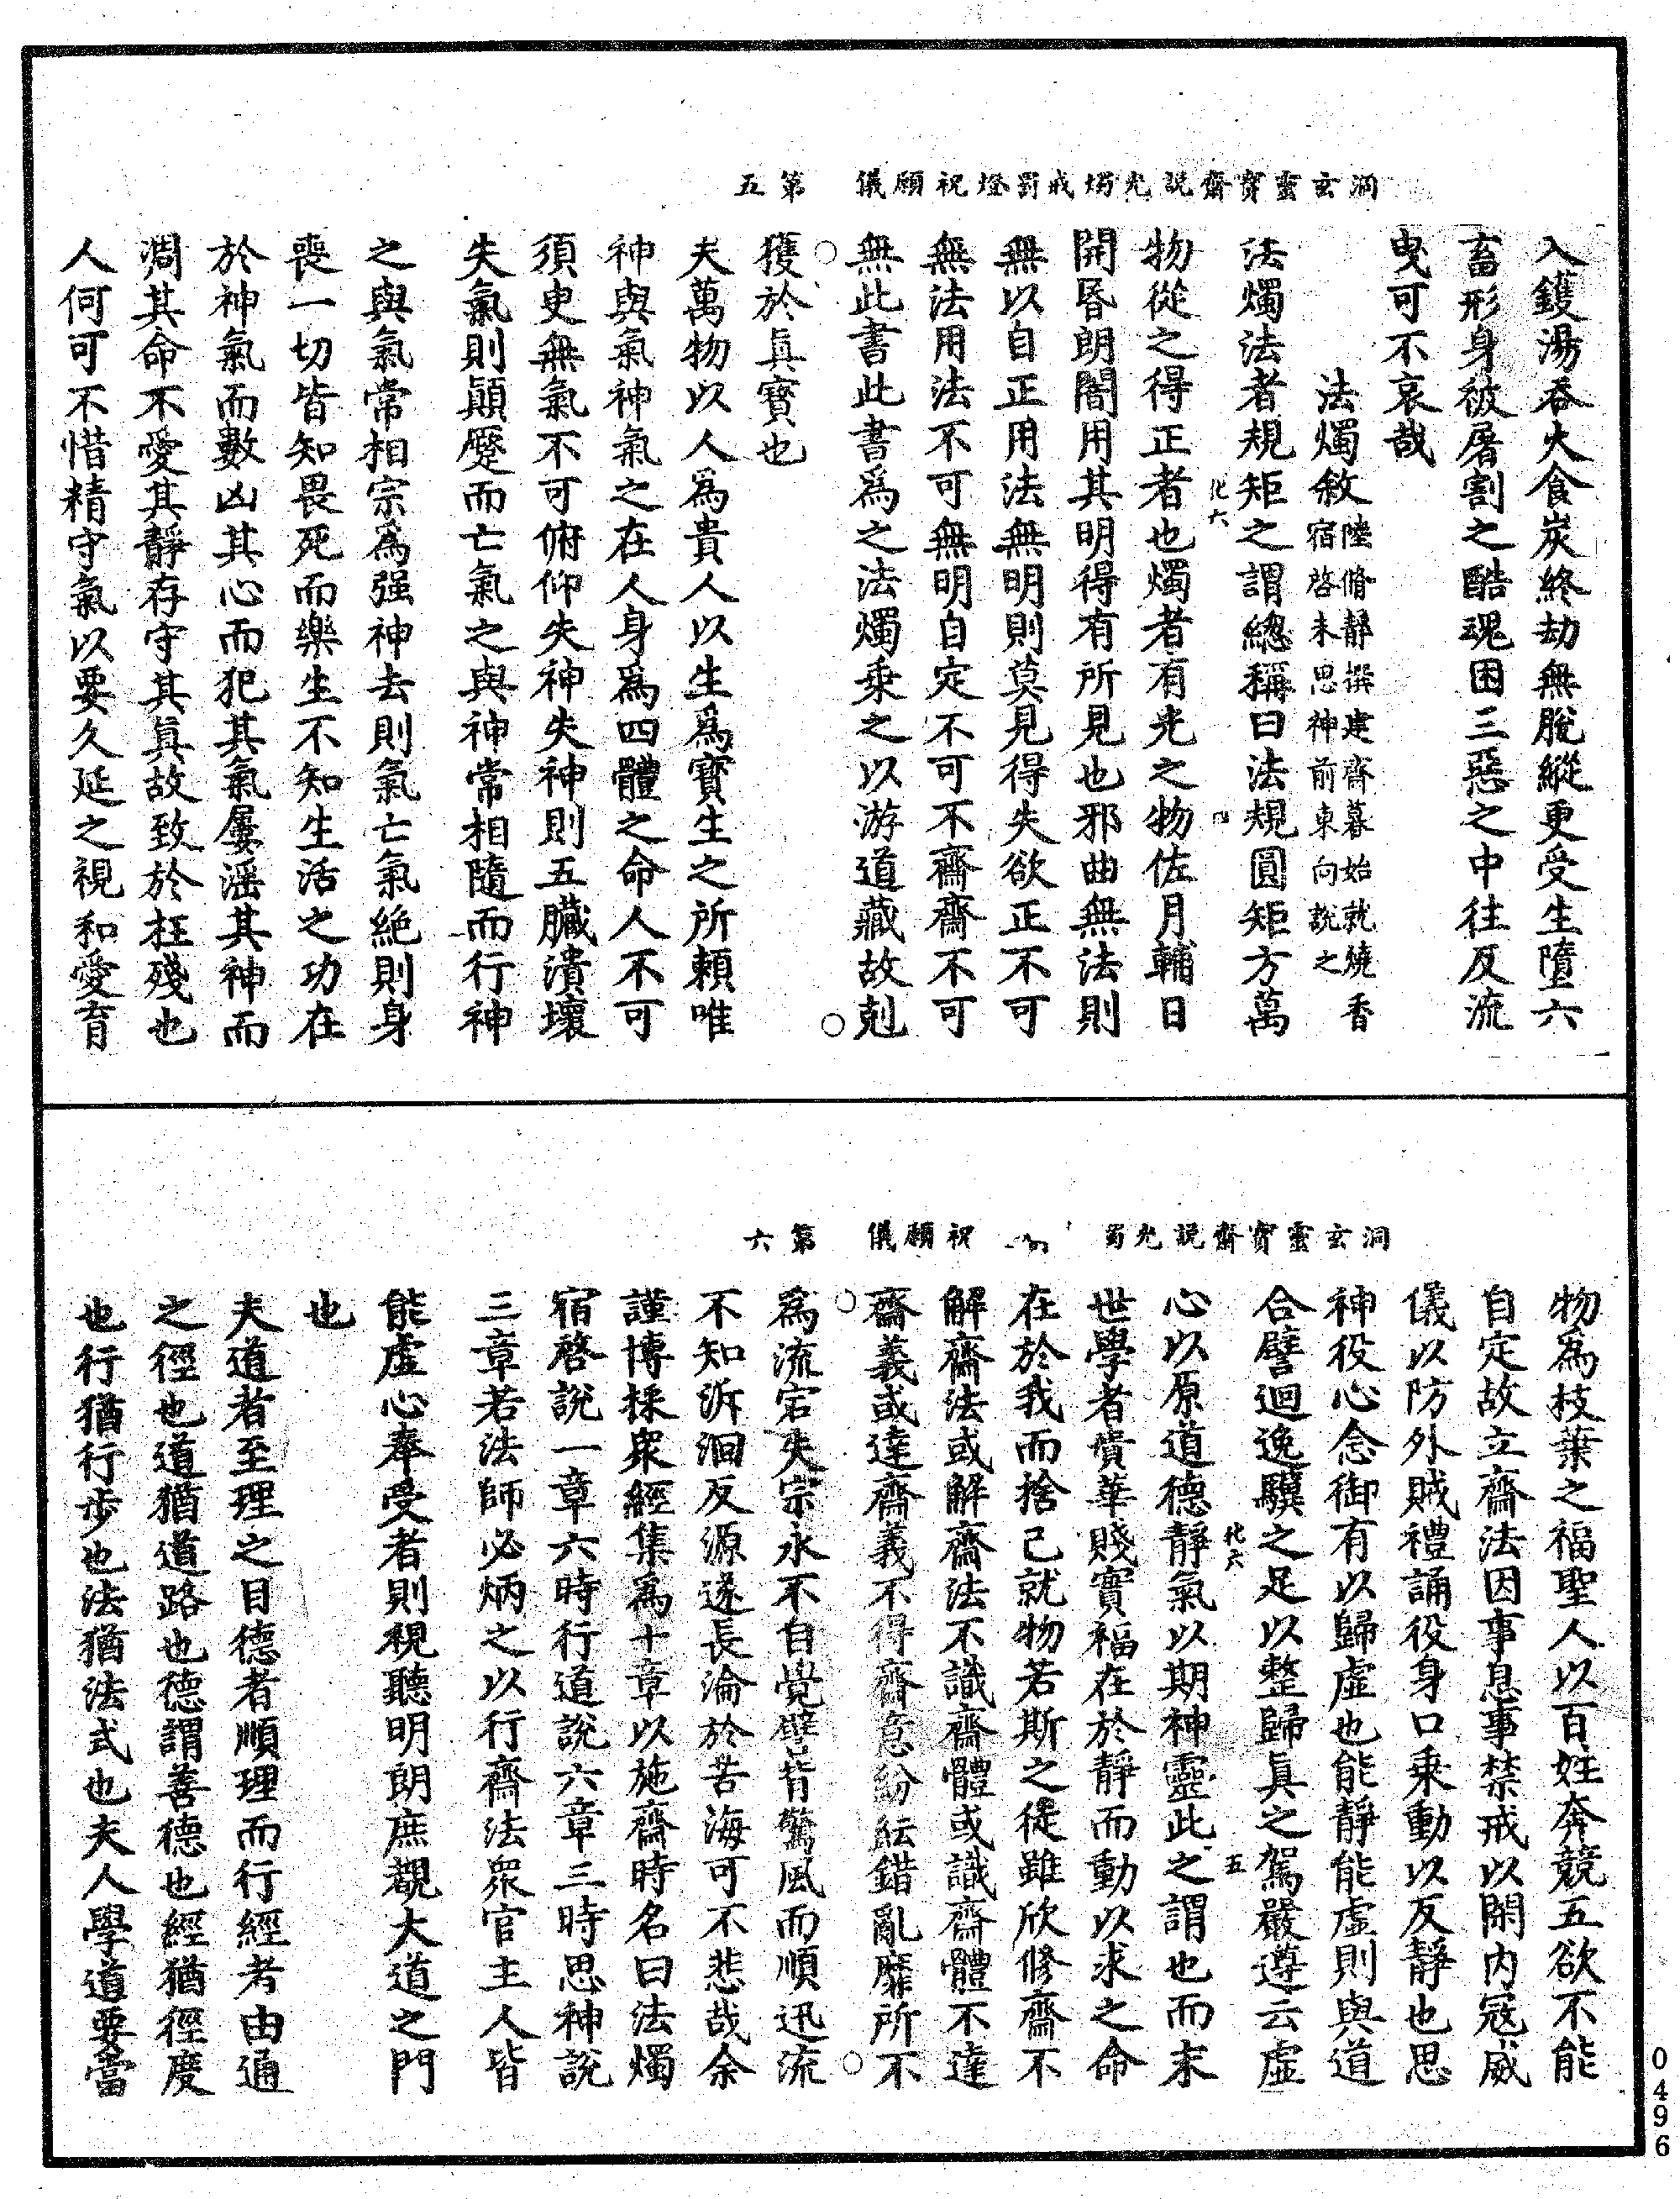 洞玄靈寳齋說光燭戒罰燈祝願儀 第五
入鑊湯吞火食炭終劫無脫縱更受生墮六
畜形身被屠割之酷魂困三惡之中往反流
曳可不哀哉
法燭敘陸脩靜撰建齋暮始就燒香
宿啓未思神前東向說之
法燭法者規矩之謂總稱曰法規圓矩方萬
化六 四
物從之得正者也燭者有光之物佐月輔日
開昬朗闇用其明得有所見也邪曲無法則
無以自正用法無明則莫見得失欲正不可
無法用法不可無明自定不可不齋齋不可
無此書此書爲之法燭乘之以游道藏故剋
獲於眞寳也
夫萬物以人爲貴人以生爲寳生之所賴唯
神與氣神氣之在人身爲四體之命人不可
須臾無氣不可俯仰失神失神則五臟潰壞
失氣則顚蹷而亡氣之與神常相隨而行神
之與氣常相宗爲强神去則氣亡氣絶則身
喪一切皆知畏死而樂生不知生活之功在
於神氣而數凶其心而犯其氣屢淫其神而
凋其命不愛其靜存守其眞故致於枉殘也
人何可不惜精守氣以要久延之視和愛育
洞玄靈寳齋說光 祝願儀 第六
物爲枝葉之福聖人以百姓奔競五欲不能
自定故立齋法因事息事禁戒以閑内寇威
儀以防外賊禮誦役身口乘動以反靜也思
神役心念御有以歸虛也能靜能虛則與道
合譬迴逸驥之足以整歸眞之駕嚴遵云虛
化六 五
心以原道德靜氣以期神靈此之謂也而末
世學者貴華賤實福在於靜而動以求之命
在於我而捨己就物若斯之徒雖欣修齋不
解齋法或解齋法不識齋體或識齋體不達
齋義或達齋義不得齋意紛紜錯亂靡所不
爲流宕失宗永不自覺譬皆驚風而順迅流
不知泝洄反源遂長淪於苦海可不悲哉余
謹博採衆經集爲十章以施齋時名曰法燭
宿啓說一章六時行道說六章三時思神說
三章若法師必炳之以行齋法衆官主人皆
能虛心奉受者則視聽明朗庶覩大道之門
也
夫道者至理之目德者順理而行經者由通
之徑也道猶道路也德謂善德也經猶徑度
也行猶行步也法猶法式也夫人學道要當
0496